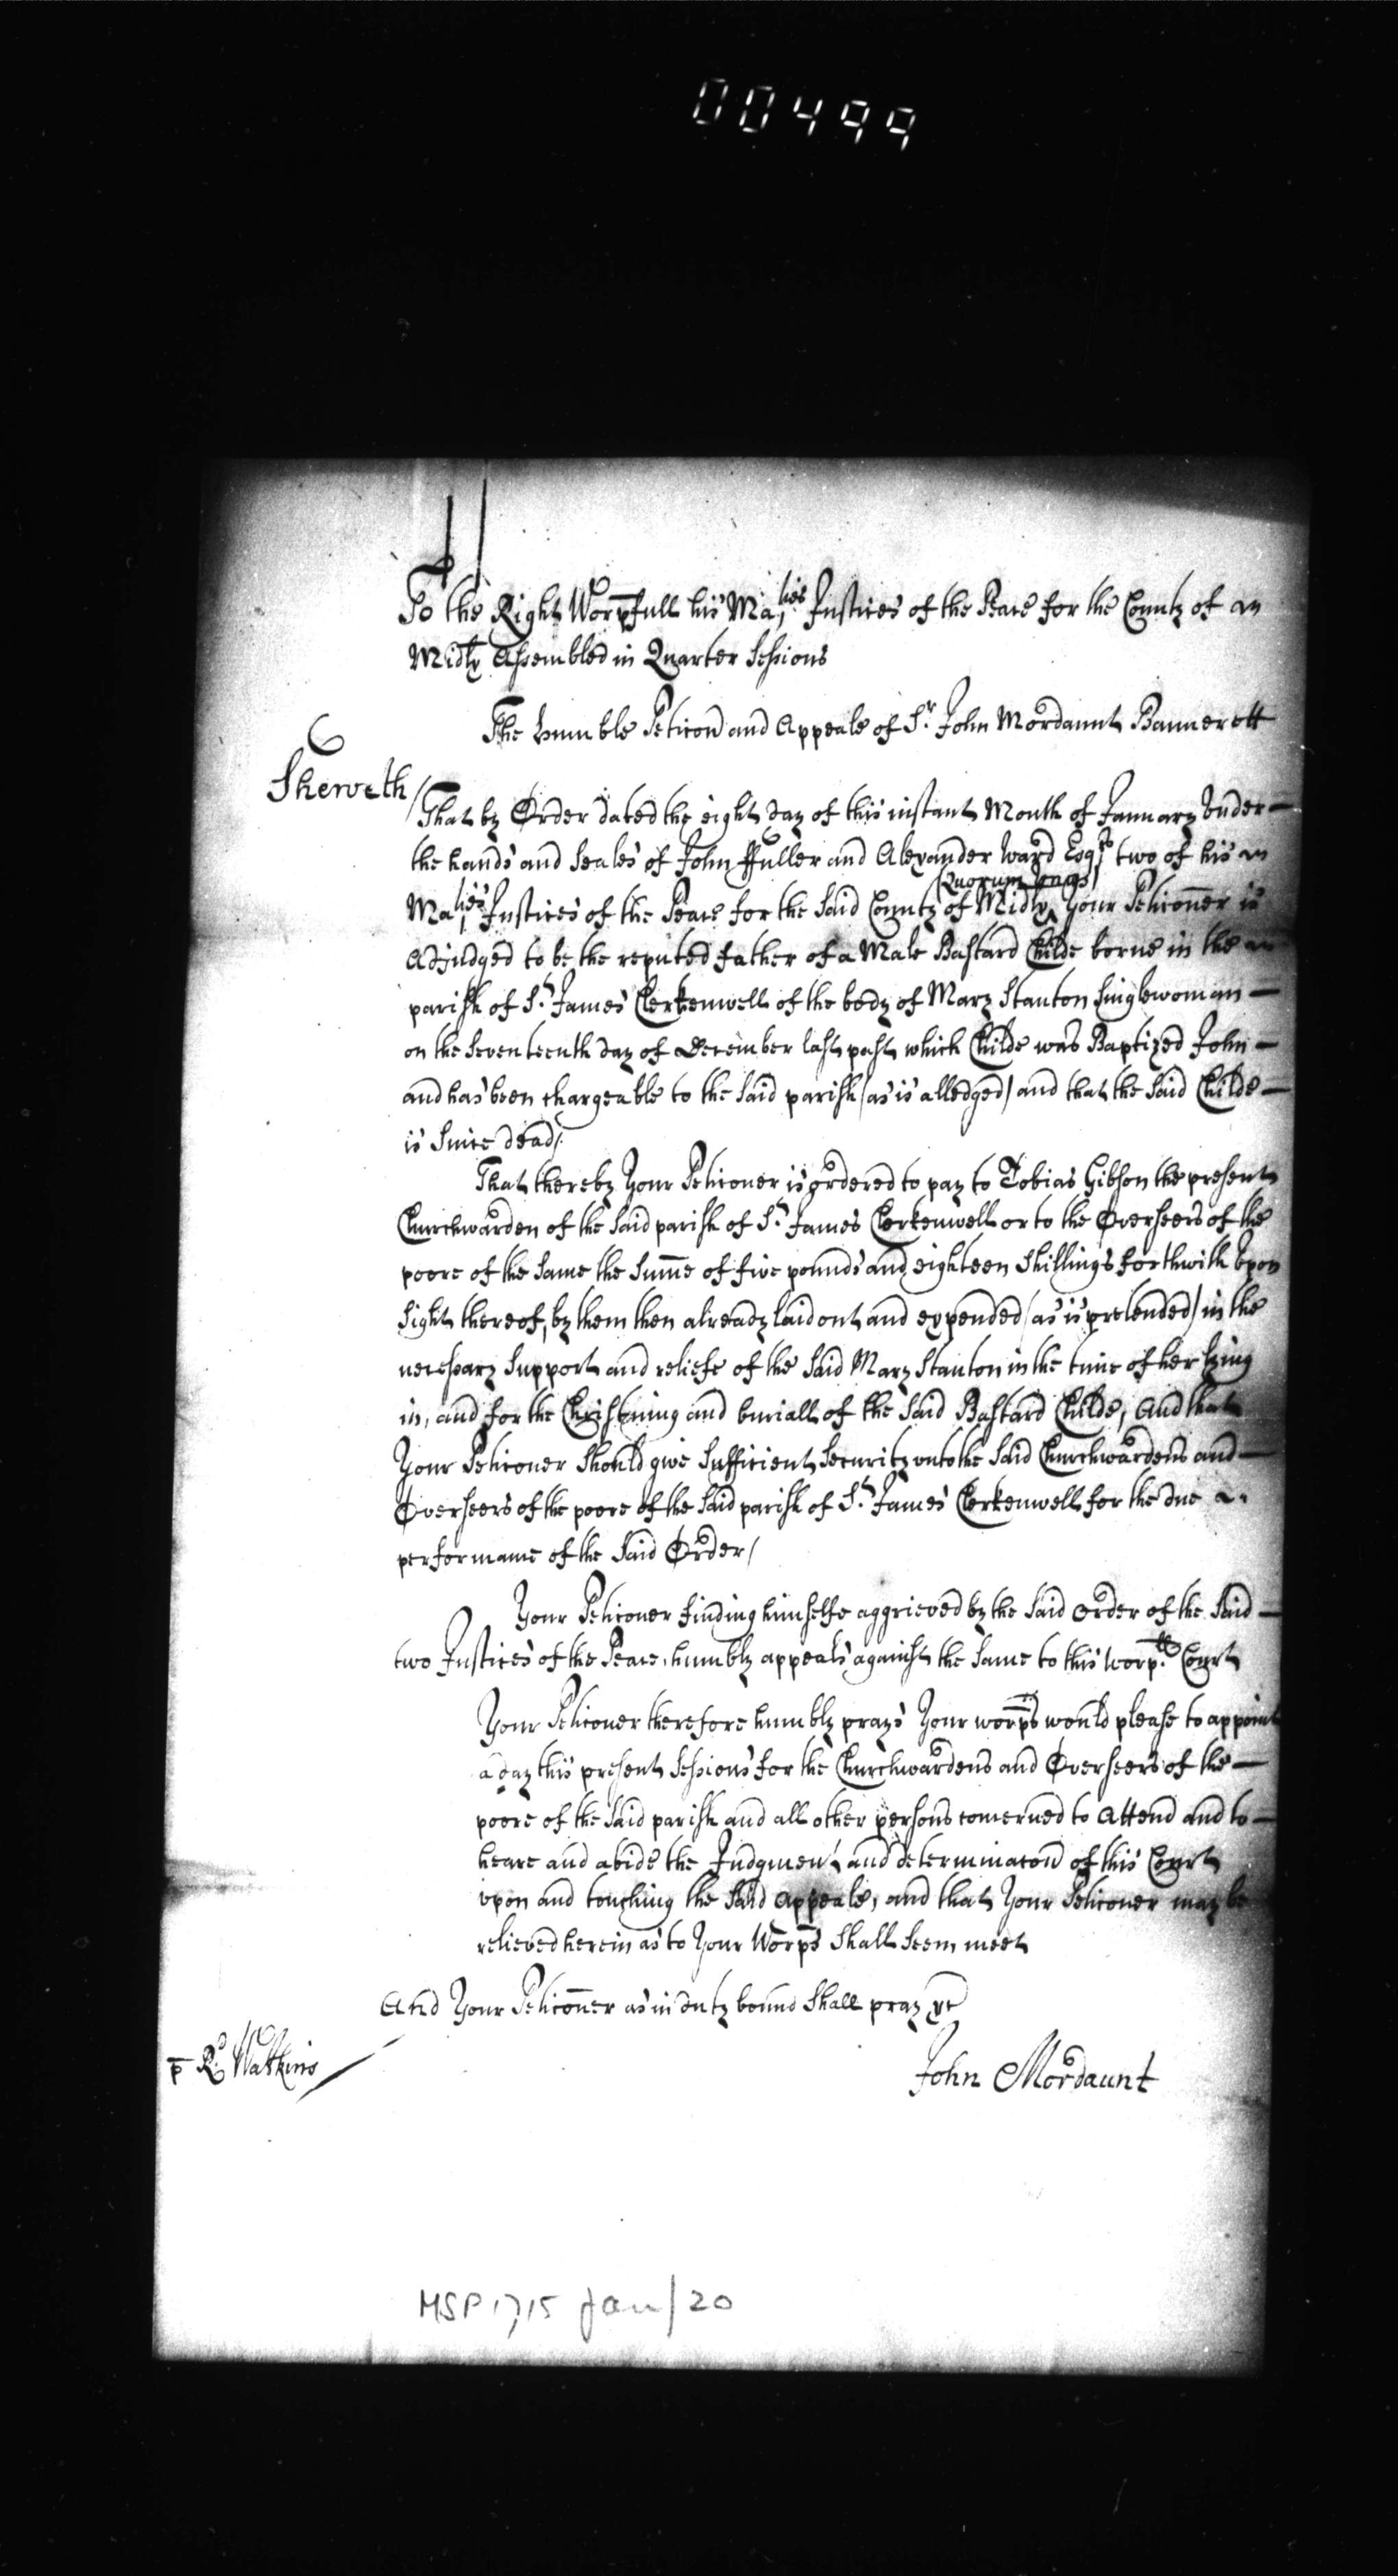 00499
To the Right Worpfull his Maties Justices of the Peace for the County of
Middx Assembled in Quarter Sessions
The humble Peticon and Appeale of Sr. John Mordaunt Bannerett
Sheweth/
That by Order dated the eight day of this instant Month of January Under
the hands and Seales of John Ffuller and Alexander Ward Esqrs two of his
(Quorum Unus)
Maties Justices of the Peace for the Said County of Middx Your Peticoner is
Adjudged to be the reputed father of a Male Bastard Childe borne in the
parish of St. James Clerkenwell of the body of Mary Stanton Singlewoman
on the Seventeenth day of December last past which Childe was Baptized John
and has been chargeable to the Said parish (as is alledged) and that the Said Childe
is Since dead/
That thereby Your Peticoner is ordered to pay to Tobias Gibson the present
Churchwarden of the Said parish of St. James Clerkenwell or to the Overseers of the
poore of the Same the Sume of five pounds and eighteen Shillings forthwith Upon
Sight thereof, by them then already laid out and expended (as is pretended) in the
necessary Support and reliefe of the Said Mary Stanton in the time of her lying
in, and for the Christning and buriall of the Said Bastard Childe, And that
Your Peticoner Should give Sufficient Security unto the Said Churchwardens and
Overseers of the poore of the Said parish of St. James Clerkenwell for the due
performance of the Said Order/
Your Peticoner finding himselfe aggrieved by the Said Order of the Said
two Justices of the Peace, humbly appeals against the Same to this Worpll Court
Your Peticoner therefore humbly prays Your worpps would please to appoint
a day this present Sessions for the Churchwardens and Overseers of the
poore of the Said parish and all other persons concerned to Attend and to
heare and abide the Judgment and determinacon of this Court
upon and touching the Said Appeale, and that Your Peticoner may be
relieved herein as to Your Worpps Shall Seem meet
And Your Peticoner as in duty bound Shall pray &c
p Rd Watkins
John Mordaunt
MSP 1715 Jan/20